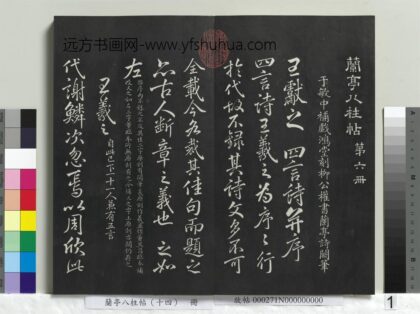 远方书画网-www.yfshuhua.com
蘭亭八柱帖 第六冊
于敏中補戲鴻堂刻柳公權書蘭亭詩闕筆
王獻之 四言詩并序
四言詩王羲之為序序行
於代故不錄其詩文多不可
全載今各裁其佳句而題之
亦古人斷章之義也 王之如
左
王羲之 自此已下十一人兼有五言
代謝鱗次忽焉以周欣此
蘭亭八柱帖（十四） 冊
故帖 000271N000000000
1